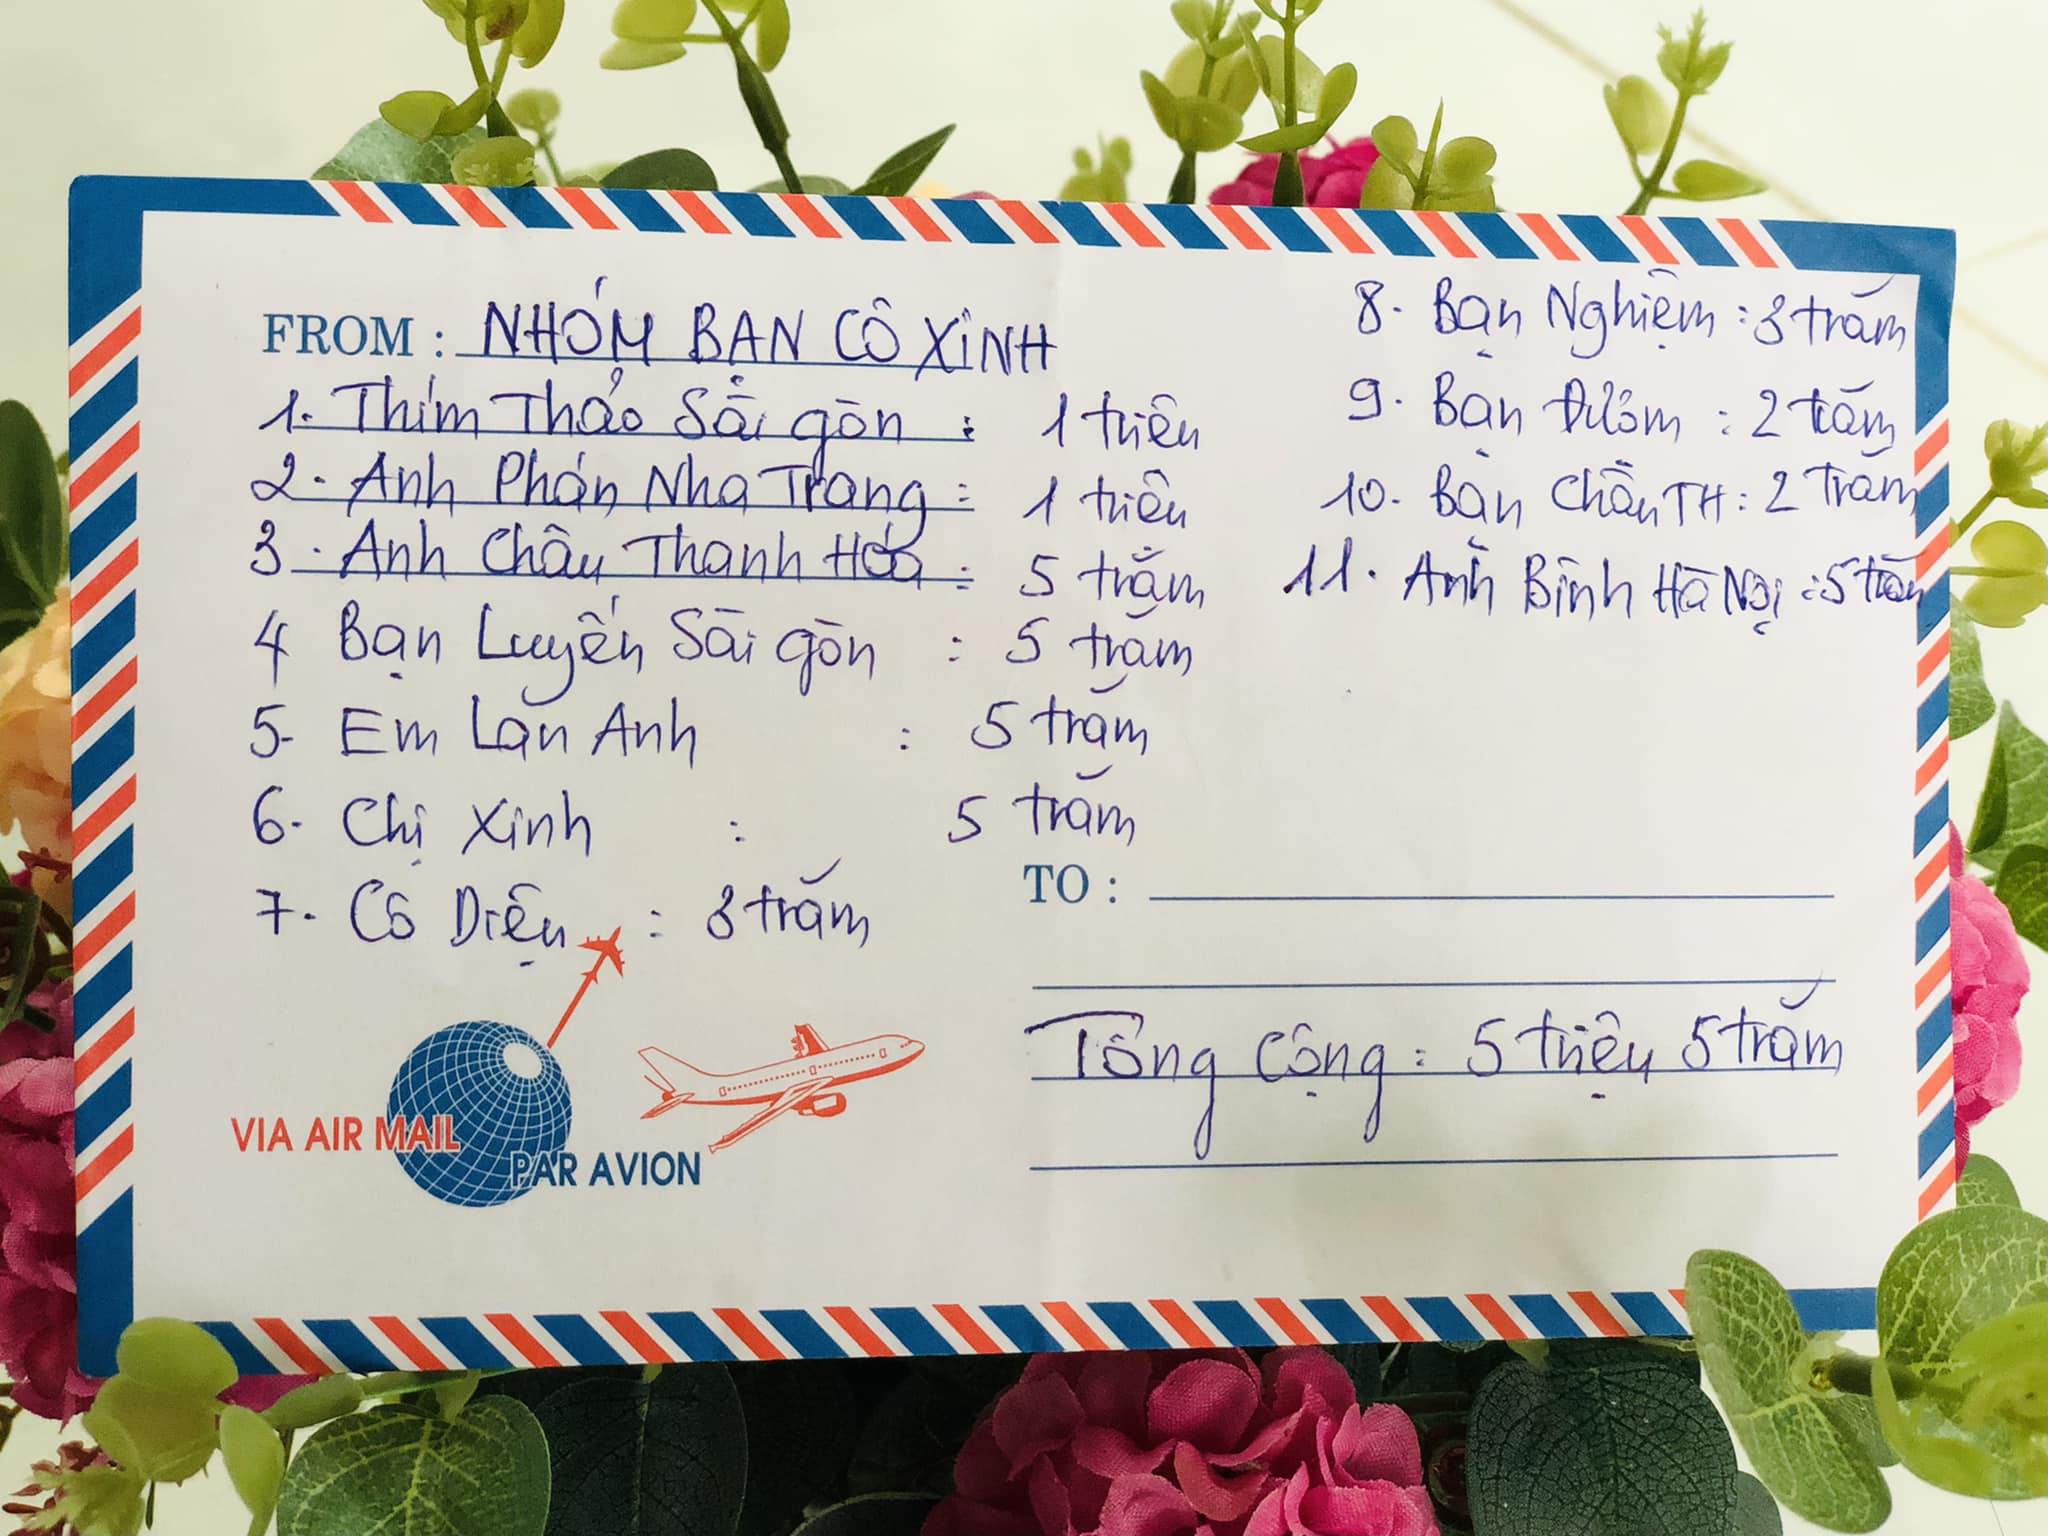 FROM : NHÓM BẠN CÔ XINH
1. Thím Thảo Sài gòn : 1 triêu
2. Anh Phán Nha Trang : 1 triêu
3. Anh Châu Thanh Hóa : 5 trăm
4 Bạn Luyến Sài gòn : 5 trăm
5. Em Lan Anh : 5 trăm
6. Chị Xinh : 5 trăm
7. Cô Diệu : 3 trăm
8. Bạn Nghiệm : 3 trăm
9. Bạn Đượm : 2 trăm
10. Bạn Chần TH : 2 trăm
11. Anh Bình Hà Nội : 5 trăm
TO :
Tổng Cộng : 5 triệu 5 trăm
VIA AIR MAIL
PAR AVION